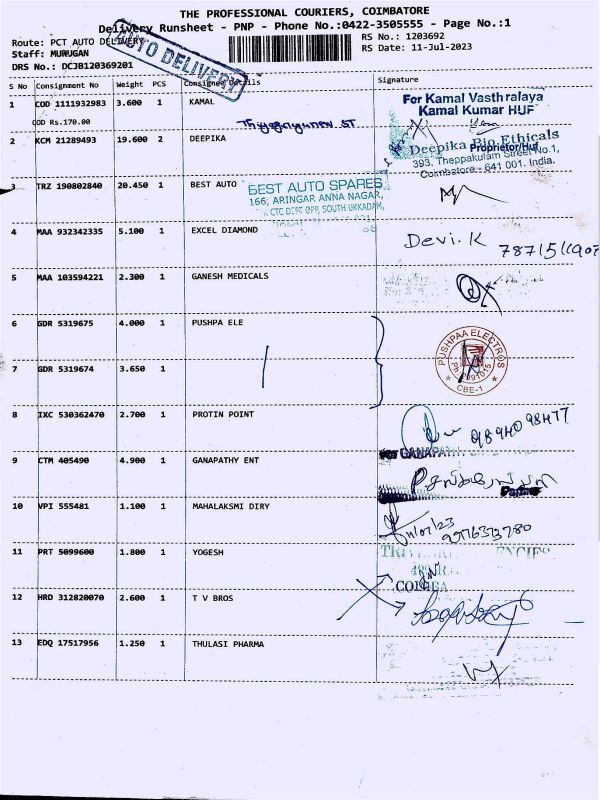 THE PROFESSIONAL COURIERS, COIMBATORE
Delivery Runsheet - PNP - Phone No.:0422-3505555 - Page No.:1
Route: PCT AUTO DELIVERY
RS No.: 1203692
Staff: MURUGAN
RS Date: 11-Jul-2023
DRS No.: DCJB120369201
AUTO DELIVERY
S No Consignment No Weight PCS Consignee Details Signature
1 COD 1111932983 3.600 1 KAMAL
COD Rs.170.00
For Kamal Vasthralaya
Kamal Kumar HUF
Proprietor/Huf
2 KCM 21289493 19.600 2 DEEPIKA
Deepika Bio Ethicals
393, Theppakulam Street No.1,
Coimbatore - 641 001. India.
3 TRZ 190802840 20.450 1 BEST AUTO
BEST AUTO SPARES
166, ARINGAR ANNA NAGAR,
CTC DEPT OPP, SOUTH UKKADAM,
4 MAA 932342335 5.100 1 EXCEL DIAMOND
Devi.K
5 MAA 103594221 2.300 1 GANESH MEDICALS
6 GDR 5319675 4.000 1 PUSHPA ELE
7 GDR 5319674 3.650 1
PUSHPAA ELECTROS
CBE-1
8 IXC 530362470 2.700 1 PROTIN POINT
9 CTM 405490 4.900 1 GANAPATHY ENT
For GANAPATH
10 VPI 555481 1.100 1 MAHALAKSMI DIRY
11/07/23
11 PRT 5099600 1.800 1 YOGESH
12 HRD 312820070 2.600 1 T V BROS
13 EDQ 17517956 1.250 1 THULASI PHARMA